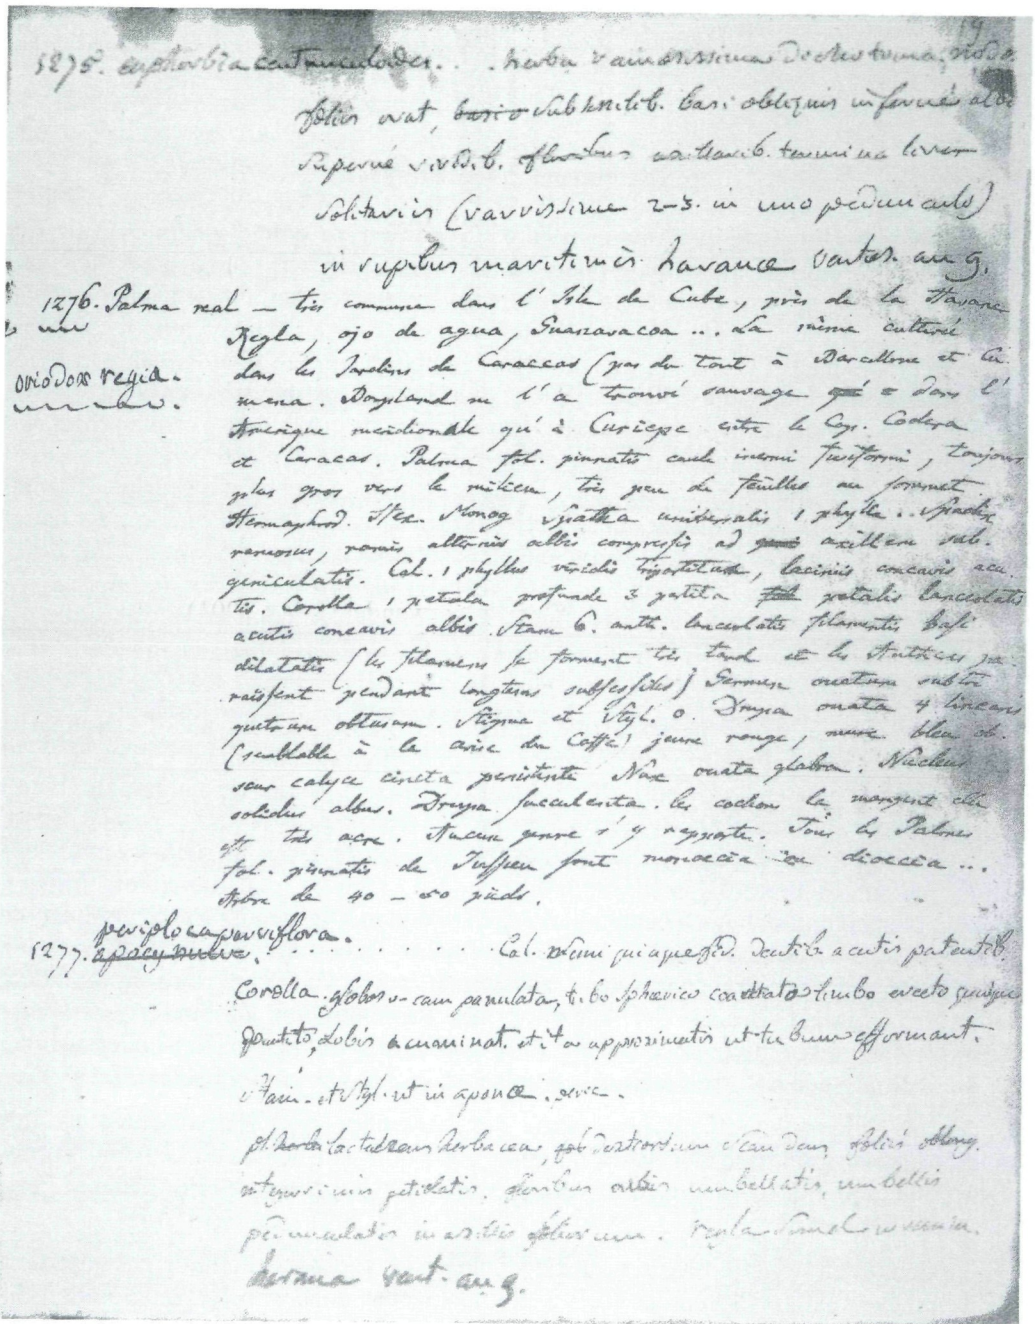 19
1275. euphorbia . . herba ramosissima dichotoma,
foliis ovat, subsessilib. basi obliquis inferné
superné virdib. floribus
solitariis (rarissime 2-3. in uno pedunculo)
in rupibus maritimis havanae an 9.
1276. Palma real — très commune dans l'Isle de Cube, près de la Havane
Regla, ojo de agua, Guanavacoa ... La même cultivée
oriodox regia.
dans les Jardins de Caraccas (pas du tout à Barcellone et Cu
mana. Bonpland ne l'a trouvé sauvage dans l'
Amérique meridionale qu'à Curiepe entre le Cap. Codera
et Caracas. Palma fol. pinnatis caule inermi fusiformi, toujours
plus gros vers le milieu, très peu de feuilles au sommet
Hermaphrod. Hex. Monog Spatha universalis 1 phylla .. Spadix
ramosus, ramis alternis albis compressis ad axillam sub.
geniculatis. Cal. 1 phyllus viridis tripartitus, laciniis concavis acu
tis. Corolla 1 petala profunde 3 partita petalis lanceolatis
acutis concavis albis. Stam 6. anth. lanceolatis filamentis basi
dilatatis (les filamens se forment très tard et les Anthères pa
raissent pendant longtems subsessiles) Germen ovatum subtri
quetrum obtusum. Stigma et Styl. 0. Drupa ovata 4 linearis
(semblable à la cerise du Caffé) jeune rouge, mure bleu ob.
scur calyce cincta persistente Nux ovata glabra. Nucleus
solidus albus. Drupa succulenta. les cochons la mangent elle
est très acre. Aucun genre s'y rapporte. Tous les Palmes
fol. pinnatis de Jussieu sont monoecia ou dioecia ...
Arbre de 40 – 50 pieds.
periploca parviflora.
1277. apocynum. . . . . . . . Cal. quinquefid. dentib. acutis patentib
Corolla globoso-campanulata, tubo sphaerico limbo erecto quinque
lobis acuminat. et ita approximatis ut tubum efformant.
Stam. et Styl. ut in
herbacea, scandens foliis oblong.
integerrimis petiolatis, floribus albis umbellatis, umbellis
pedunculatis in axillis foliorum. regla
havana an 9.